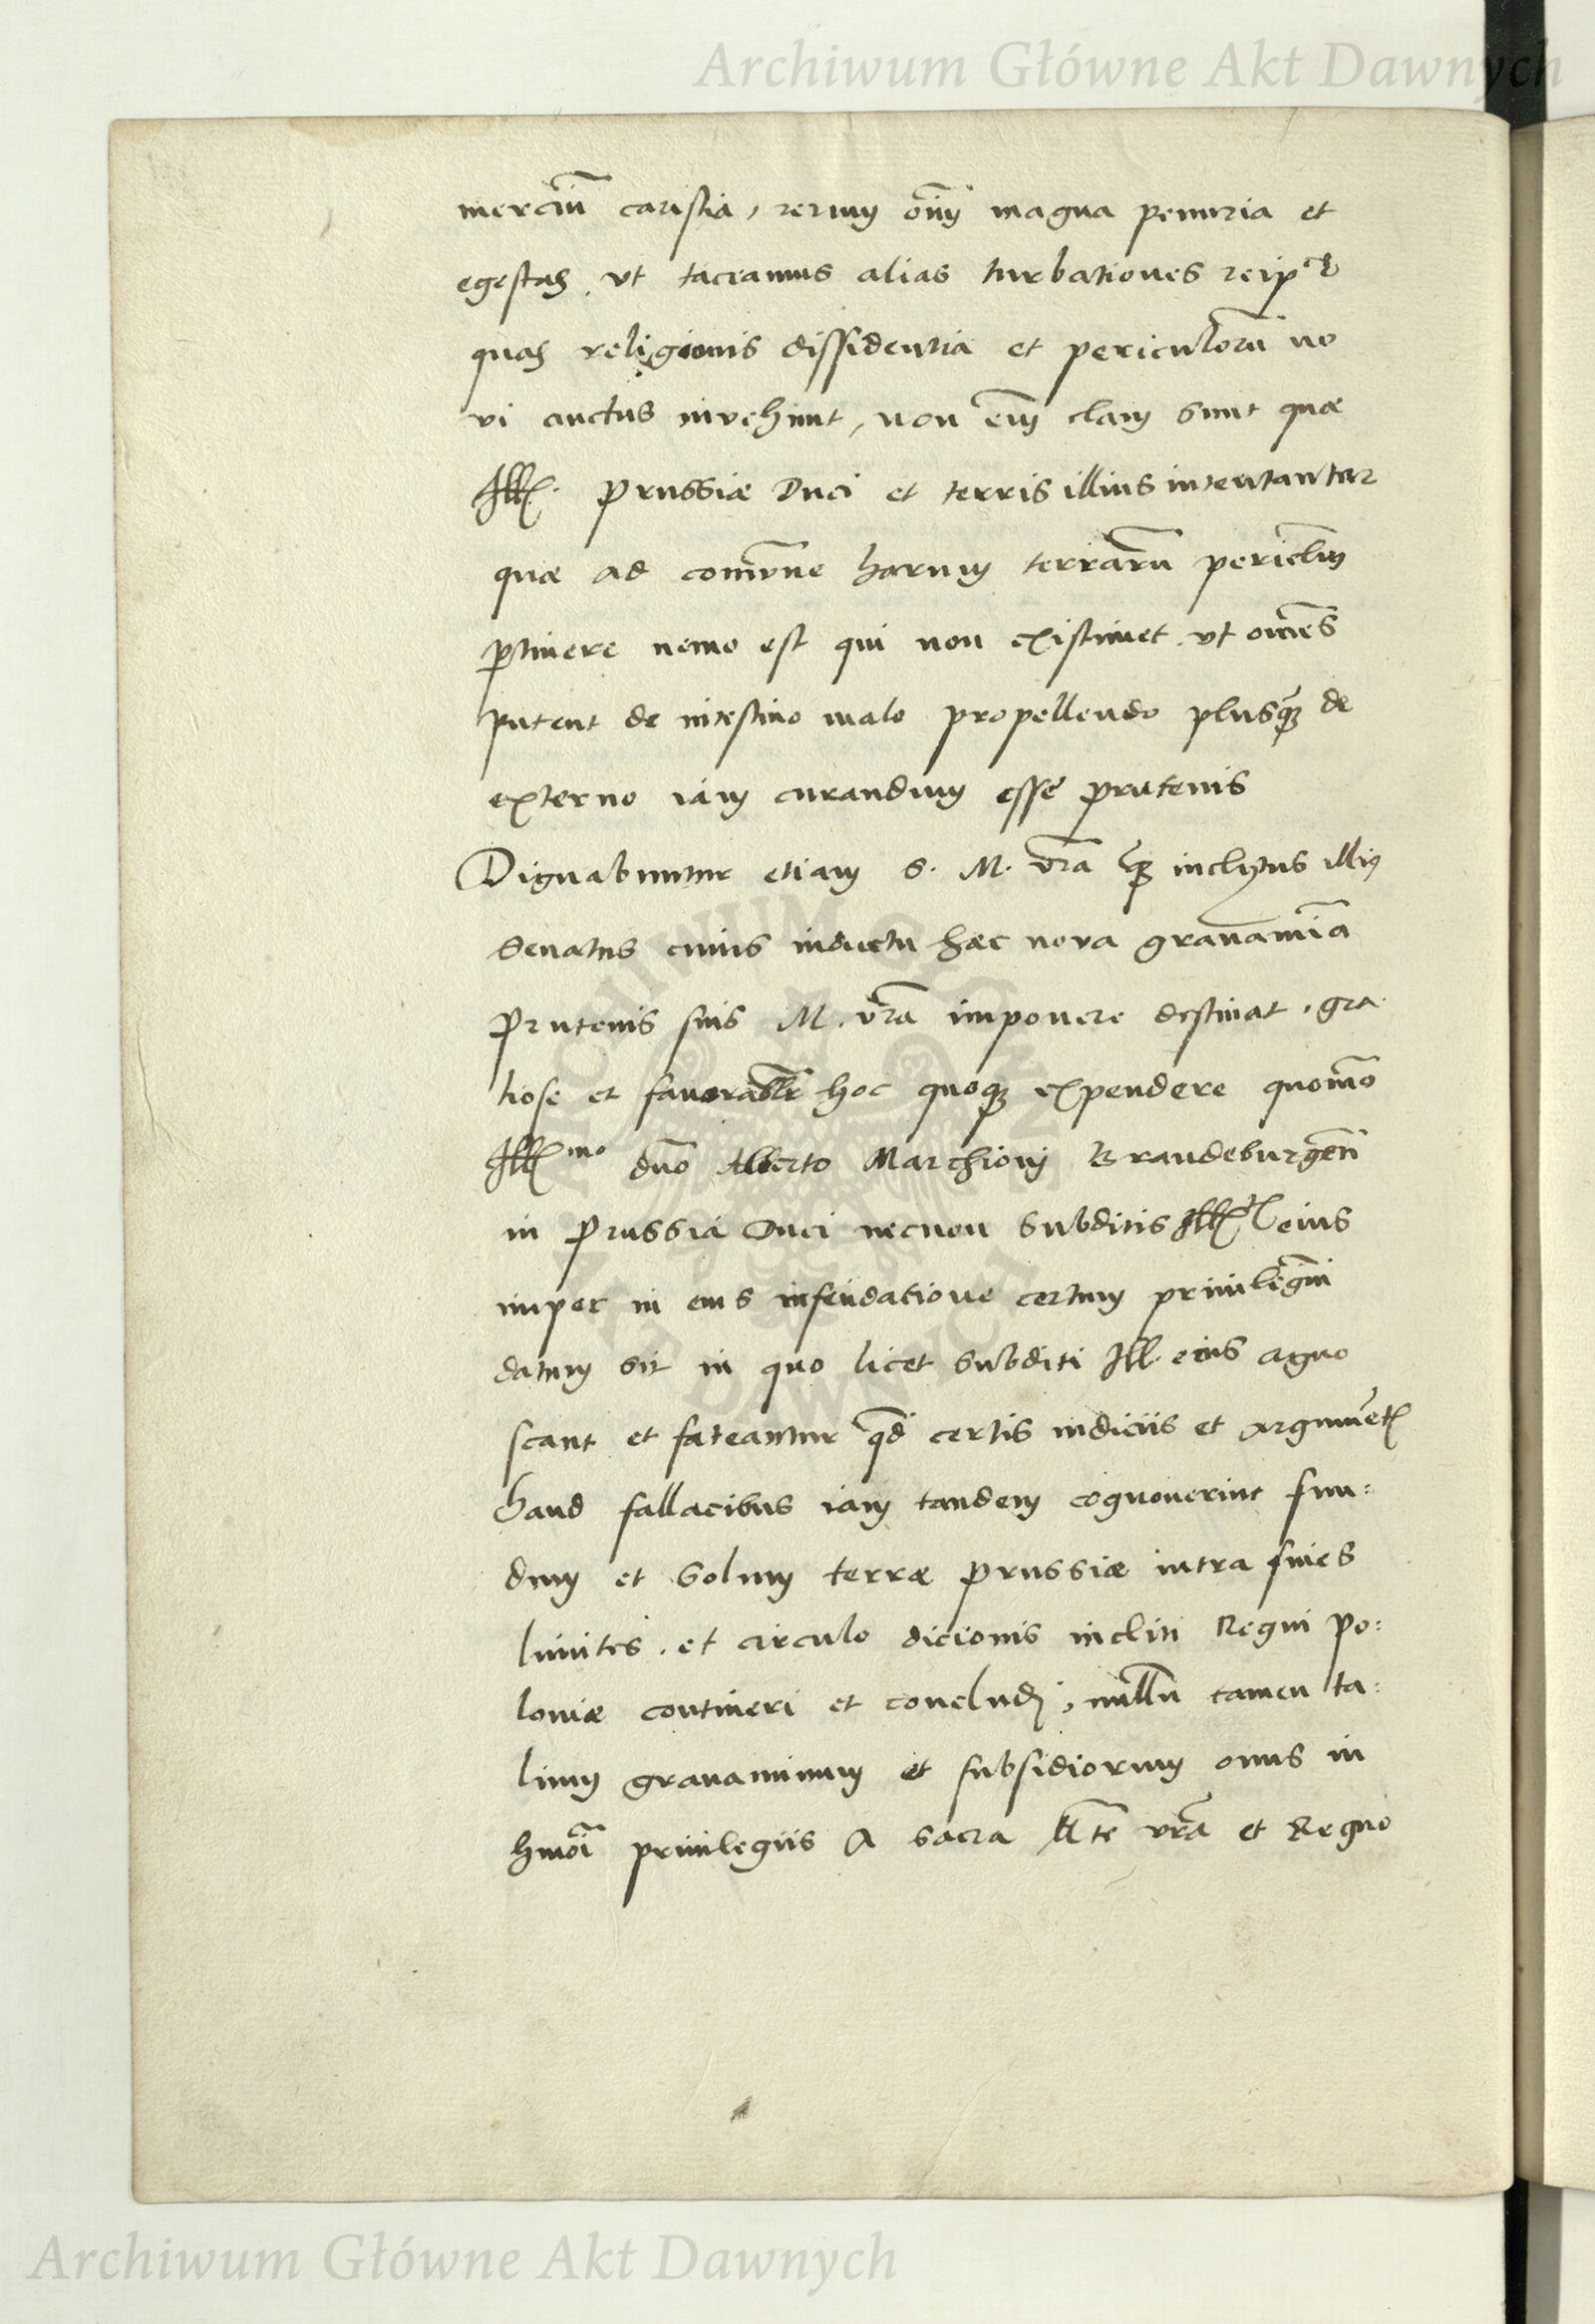 Archiwum Główne Akt Dawnych
merciũ caristia, rerum om̃i magna penuria et
egestas, vt taceamus alias turbationes reip̃
quas religionis dissidentia et periculorũ no
vi auctus invehunt, non em̃ clam sunt quæ
Ill. Prussiæ Duci et terris illius intentantur
quæ ad com̃une harum terrarũ periclm̃
ptinere nemo est qui non existimet vt om̃es
putent de intestino malo propellendo plusq̃ de
externo iam curandum esse prutenis
Dignabuntur etiam S. M. vr̃a q̃ inclytus illis
Senatus cuius inductu hæc nova gravamĩa
Prutenis suis M. vr̃a imponere destinat, gra
tiose et favorablr̃ hoc quoq expendere quom̃o
Illmo dño Alberto Marchioni Brandeburgeñ
in Prussia Duci necnon subditis Ill eius
nuper in eius infeudatione certum privilegiũ
datum sit in quo licet subditi Ill. eius agno
scant et fateantur qd̃ certis indiciis et argumẽt
haud fallacibus iam tandem cognoverint fun=
dum et solum terræ prussiæ intra fines
limites. et circulo dicionis incliti Regni Po=
loniæ contineri et concludj, nullũ tamen ta=
lium gravaminum et subsidiorum onus in
hmõi privilegiis A sacra Mte vr̃a et Regno
Archiwum Główne Akt Dawnych